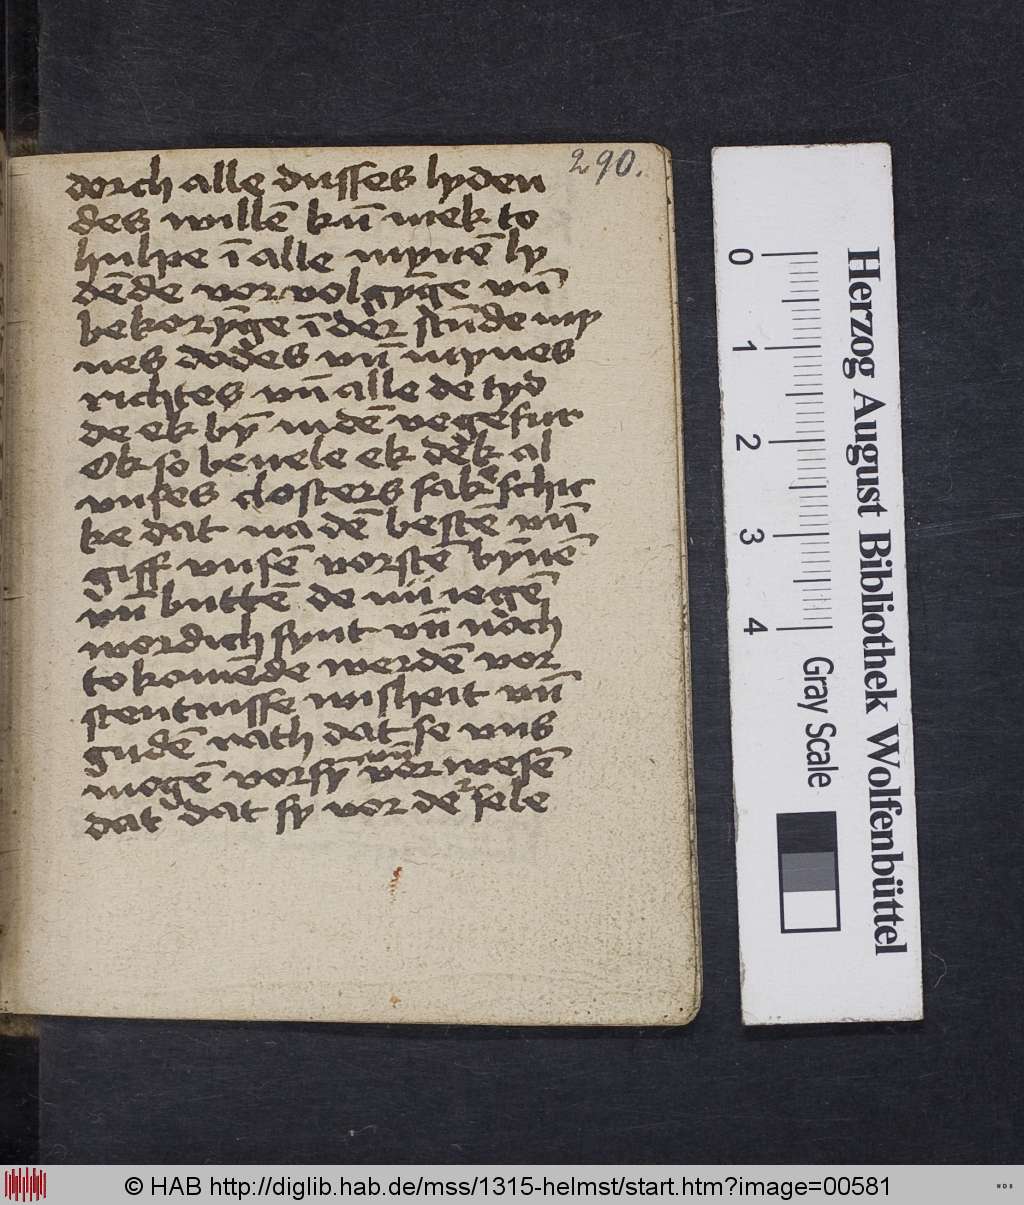 290.
dorch alle dusses lyden
des willē kū mek to
hulpe ī alle mynē ly
dēde vor volgȳge vn̄
bekorȳge ī der stūde my
nes dodes vn̄ mynes
richtes vn̄ alle de tyd
de ek bȳ in dē vegefur
Ok so beuele ek dek al
vnses closters sake schic
ke dat na dē bestē vn̄
giff vnsē vorstē bȳnē
vn̄ buttē de nu iegē
wordich synt vn̄ noch
to komēde werdē vor
stentnisse wisheit vn̄
gudē rath dat se vns
mogē vorsȳ vn̄ vor wesē
dat dat sy vor de sele
Herzog August Bibliothek Wolfenbüttel
0 1 2 3 4
Gray Scale
© HAB http://diglib.hab.de/mss/1315-helmst/start.htm?image=00581